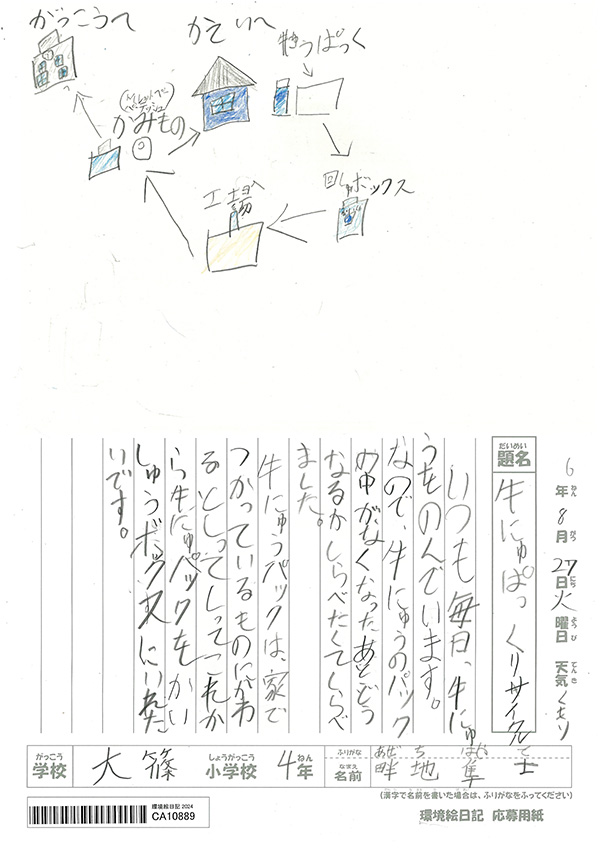 がっこうへ
かていへ
牛にうぱっく
かみもの
回しゅボックス
工場へ
6年8月27日火曜日 天気くもり
ねん がつ にち ようび てんき
だいめい
題名
牛にゅぱっくリサイクル
いつも毎日、牛にゅ
うをのんでいます。
なので、牛にゅうのパック
の中がなくなったあとどう
なるかしらべたくてしらべ
ました。
牛にゅうパックは、家で
つかっているものにかわ
るとしってしってこれか
ら牛にゅパックをかい
しゅうボックスにいれた
いです。
がっこう しょうがっこう ねん ふりがな あぜち はやと
学校 大篠 小学校 4年 なまえ 名前 畔地 隼士
(漢字で名前を書いた場合は、ふりがなをふってください)
環境絵日記 2024
CA10889
環境絵日記 応募用紙